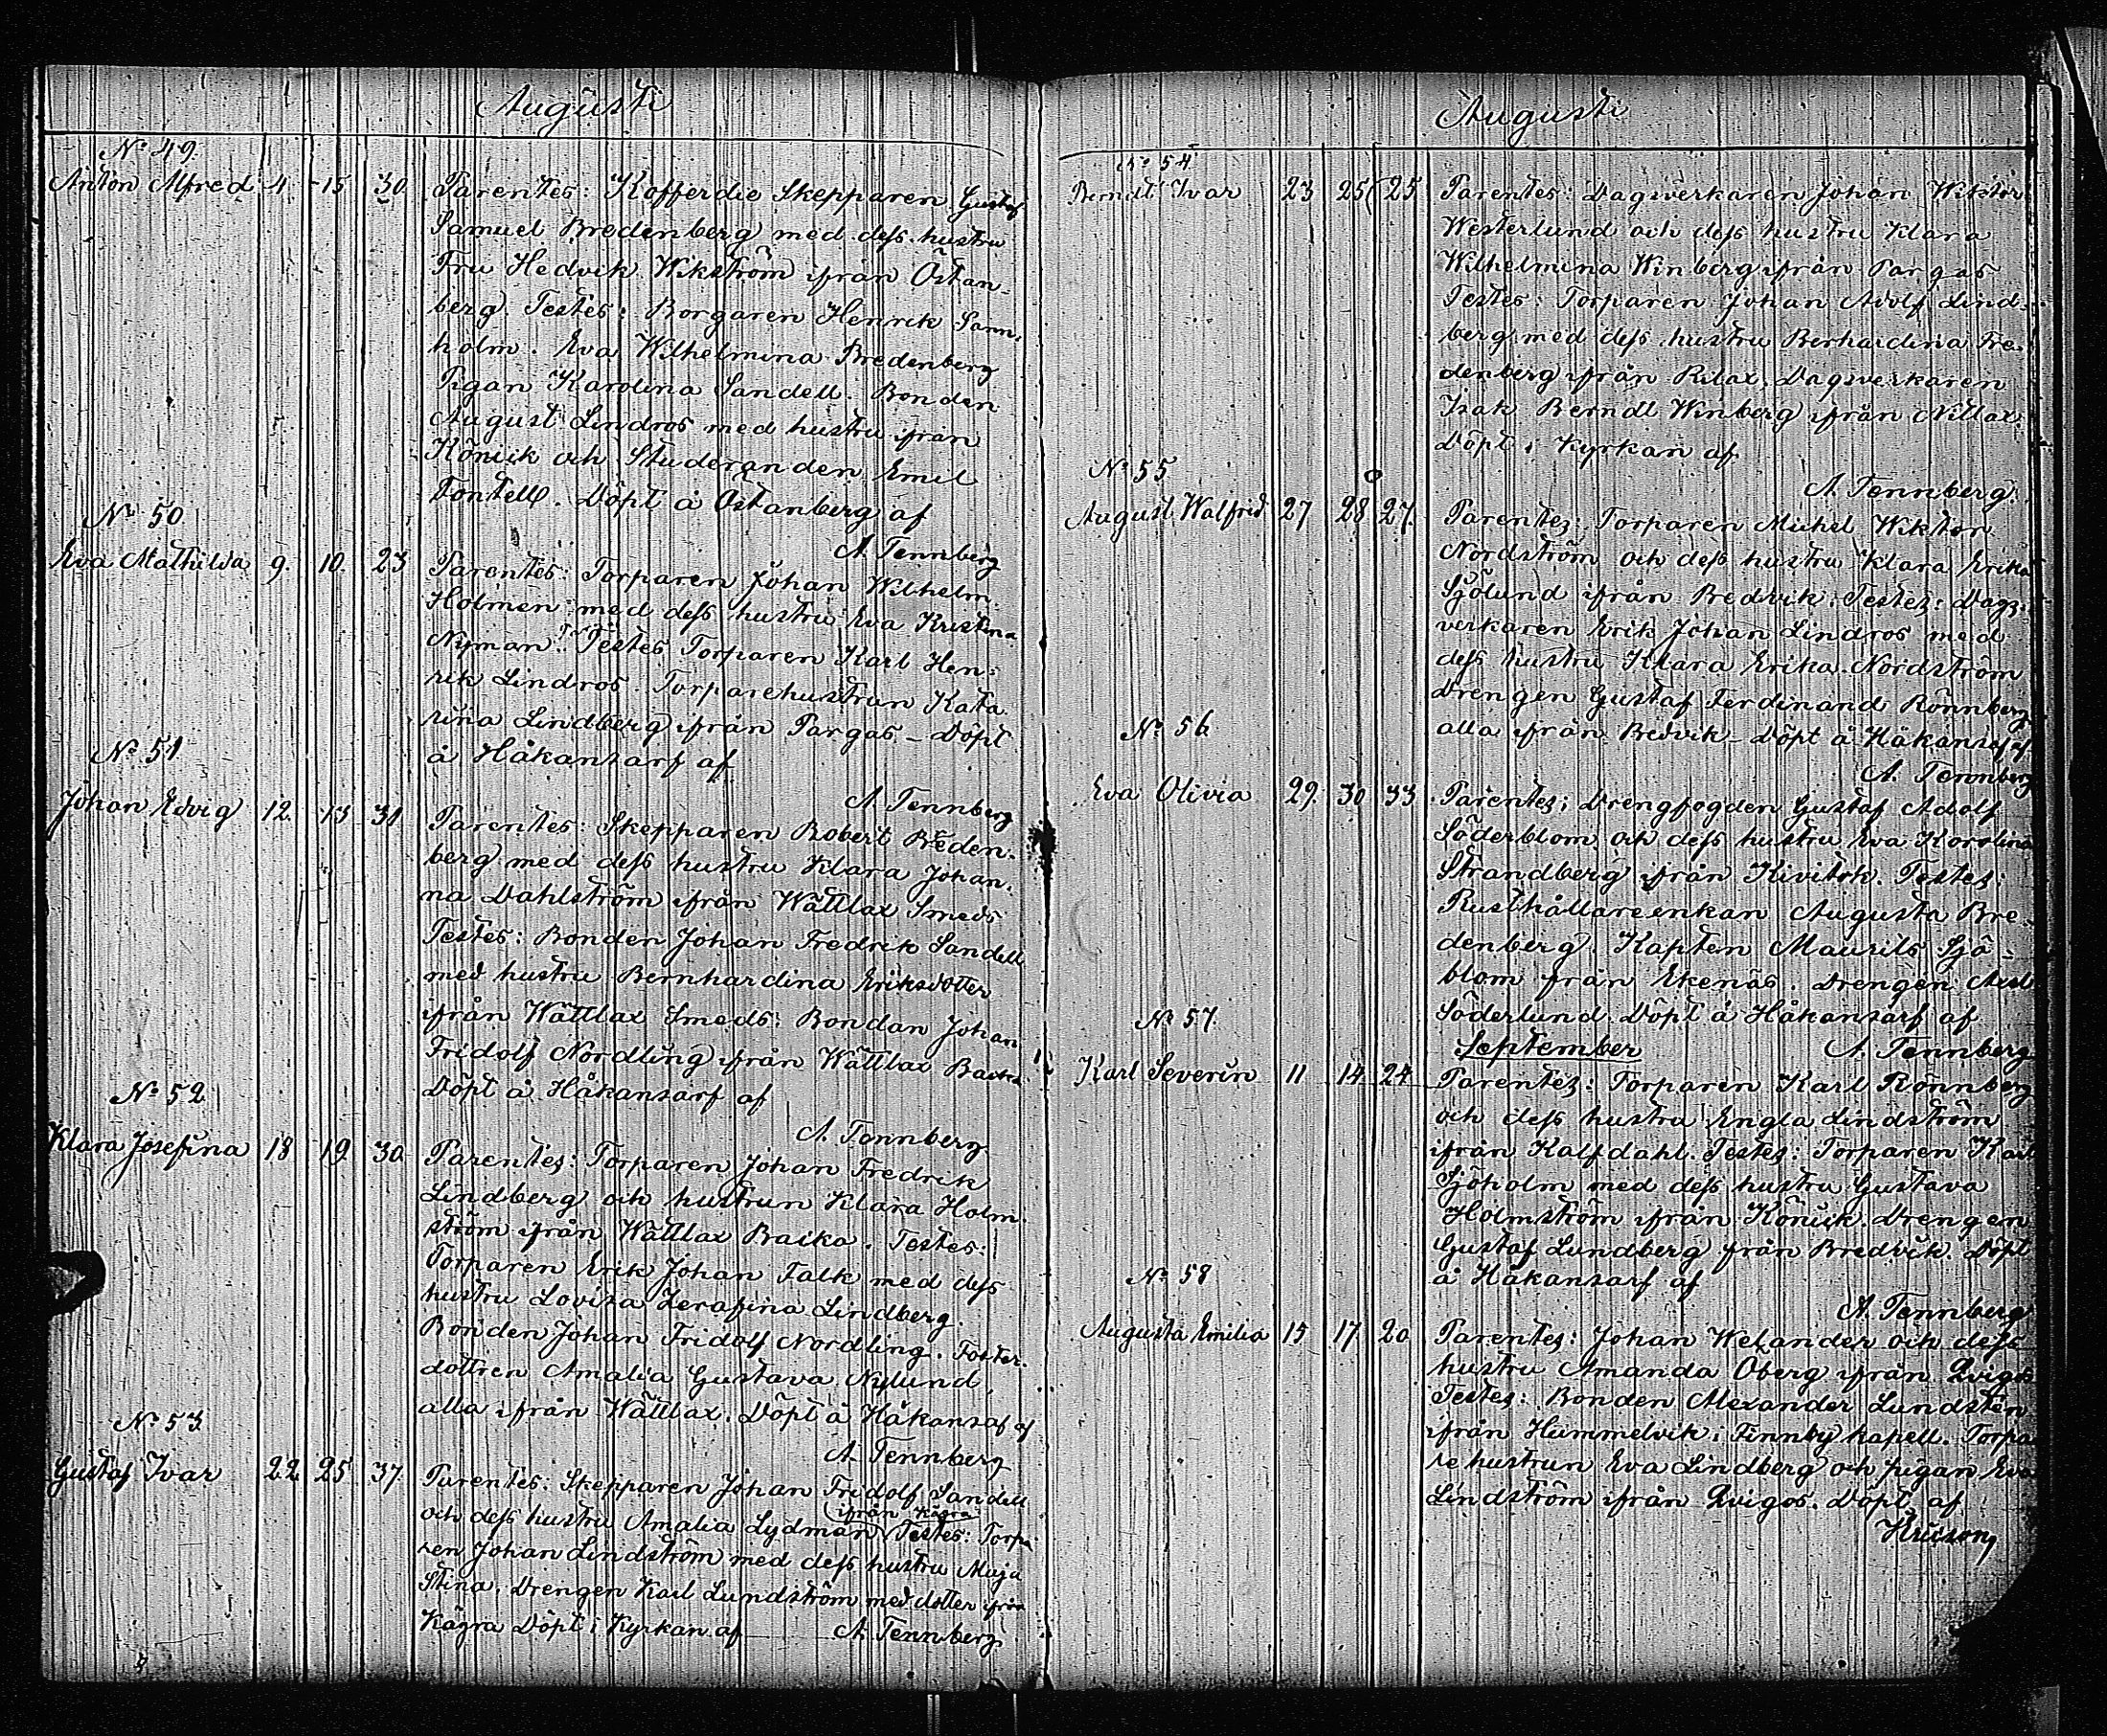 Augusti
No 49
Anton Alfred 4 15 30 Parentes: Kofferdie Skepparen Gustaf
Samuel Bredenberg med dess hustru
Fru Hedvik Wikström ifrån Östan-
berg. Testes: Borgaren Henrik Sann-
holm. Eva Wilhelmina Bredenberg
Pigan Karolina Sandell. Bonden
August Lindros med hustru ifrån
Könick och Studeranden Emil
Fontell. Döpt å Östanberg af
A. Tennberg
No 50
Eva Mathilda 9 10 23 Parentes: Torparen Johan Wilhelm
Holmen med dess hustru Eva Kristina
Nyman. Testes Torparen Karl Hen-
rik Lindros. Torparehustrun Kata
rina Lindberg ifrån Pargas - Döpt
å Håkansarf af
A. Tennberg
No 51
Johan Edvig 12 13 31 Parentes: Skepparen Robert Breden-
berg med dess hustru Klara Johan-
na Dahlström ifrån Wättlax Smeds
Testes: Bonden Johan Fredrik Sandell
med hustru Bernhardina Eriksdotter
ifrån Wättlax Smeds: Bondan Johan
Fridolf Nordling ifrån Wättlax Backa
Döpt å Håkansarf af
A. Tennberg
No 52
Klara Josefina 18 19 30 Parentes: Torparen Johan Fredrik
Lindberg och hustrun Klara Holm-
ström ifrån Wättlax Backa. Testes:
Torparen Erik Johan Falk med dess
hustru Lovisa Zerafina Lindberg.
Bonden Johan Fridolf Nordling. Foster-
dottren Amalia Gustava Nylund,
alla ifrån Wättlax. Döpt å Håkansaf af
A. Tennberg
No 53
Gustaf Ivar 22 25 37 Parentes: Skepparen Johan Fridolf Sandell
ifrån Kägra
och dess hustru Amalia Lydman Testes: Torpa
ren Johan Lindström med dess hustru Maja
Stina. Drengen Karl Lundström med dotter ifrån
Kägra Döpt i Kyrkan af A. Tennberg
Augusti
No 54
Berndt Ivar 23 25 25 Parentes: Dagsverkaren Johan Wiktor
Westerlund och dess hustru Klara
Wilhelmina Winberg ifrån Pargas
Testes: Torparen Johan Adolf Lind-
berg med dess hustru Berhardina Fre-
denberg ifrån Rilax. Dagsverkaren
Isak Berndt Winberg ifrån Nitlax.
Döpt i Kyrkan af
A. Tennberg.
No 55
August Walfrid 27 28 27 Parentes: Torparen Mickel Wiktor
Nordström och dess hustru Klara Erika
Sjölund ifrån Bredvik. Testes: Dags-
verkaren Erik Johan Lindros med
dess hustru Klara Erika Nordström
Drengen Gustaf Ferdinand Rönnberg
alla ifrån Bredvik - Döpt å Håkansaf af
A. Tennberg
No 56
Eva Olivia 29 30 33 Parentes: Drengfogden Gustaf Adolf
Söderblom och dess hustru Eva Karolina
Strandberg ifrån Kivitok. Testes:
Rusthållareenkan Augusta Bre-
denberg. Kapten Maurits Sjö-
blom från Ekenäs. Drengen Axel
Söderlund. Döpt å Håkansarf af
September A. Tennberg
No 57
Karl Severin 11 14 24 Parentes: Torparen Karl Rönnberg
och dess hustru Engla Lindström
ifrån Kalfdahl. Testes: Torparen Karl
Sjöholm med dess hustru Gustava
Holmström ifrån Könick. Drengen
Gustaf Lundberg från Bredvik. Döpt
å Håkansarf af
A. Tennberg
No 58
Augusta Emilia 15 17 20 Parentes: Johan Welander och dess
hustru Amanda Öberg ifrån Qvigos
Testes: Bonden Alexander Lundsten
ifrån Hummelvik i Finnby kapell. Torpa
re hustrun Eva Lindberg och pigan Eva
Lindström ifrån Qvigos. Döpt af